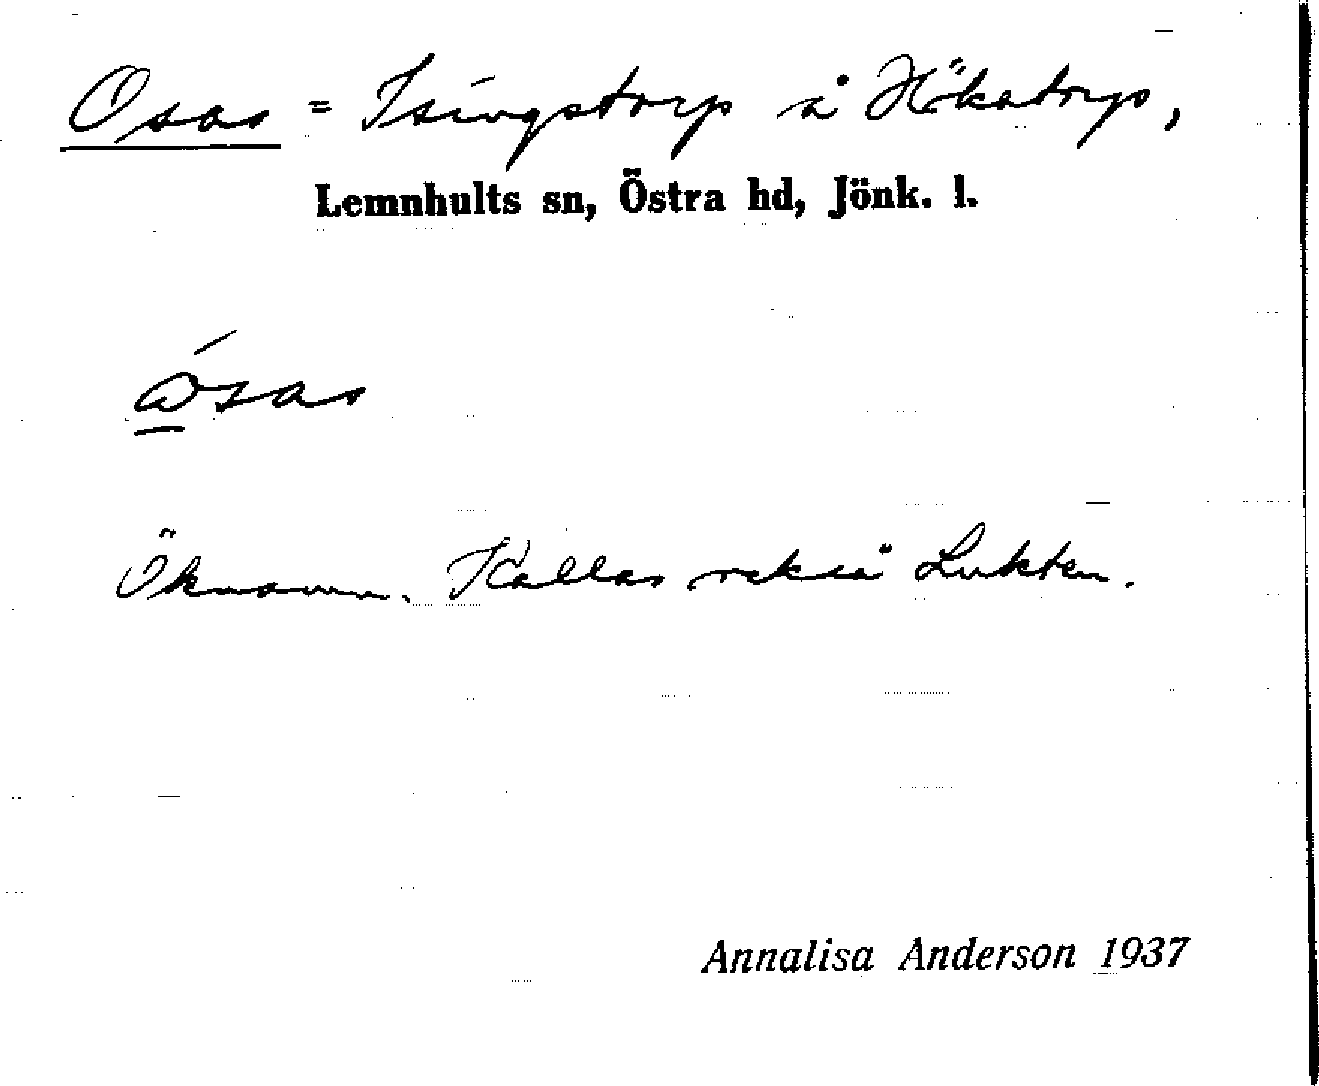 Osas = Isingstorp å Hökatorp,
Lemnhults sn, Östra hd, Jönk. l.
ósas
Öknamn. Kallas också Lukten.
Annalisa Anderson 1937